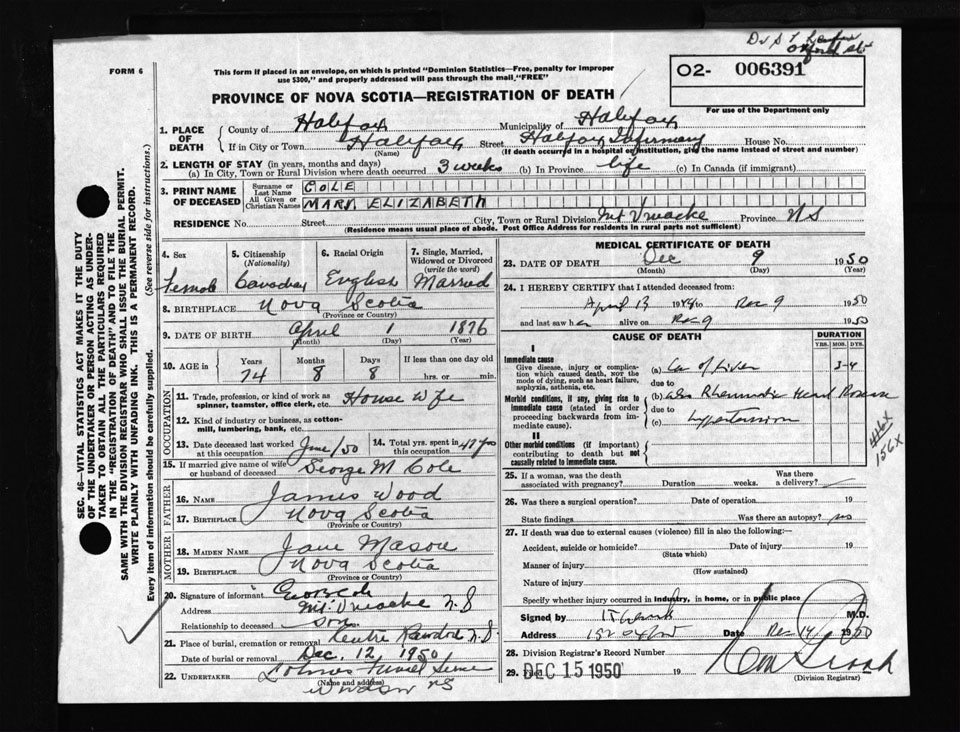 FORM 6
This form if placed in an envelope, on which is printed "Dominion Statistics—Free, penalty for improper
use $300," and properly addressed will pass through the mail "FREE"
O2- 006391
For use of the Department only
PROVINCE OF NOVA SCOTIA—REGISTRATION OF DEATH
SEC. 46—VITAL STATISTICS ACT MAKES IT THE DUTY
OF THE UNDERTAKER OR PERSON ACTING AS UNDER-
TAKER TO OBTAIN ALL THE PARTICULARS REQUIRED
IN THE "REGISTRATION OF DEATH" AND TO FILE THE
SAME WITH THE DIVISION REGISTRAR WHO SHALL ISSUE THE BURIAL PERMIT.
WRITE PLAINLY WITH UNFADING INK. THIS IS A PERMANENT RECORD.
Every item of information should be carefully supplied. (See reverse side for instructions.)
1. PLACE OF DEATH
County of Halifax Municipality of Halifax
If in City or Town Halifax Street Halifax Infirmary House No.
(Name) (If death occurred in a hospital or institution, give the name instead of street and number)
2. LENGTH OF STAY (in years, months and days)
(a) In City, Town or Rural Division where death occurred 3 weeks (b) In Province life (c) In Canada (if immigrant)
3. PRINT NAME OF DECEASED
Surname or Last Name COLE
All Given or Christian Names MARY ELIZABETH
RESIDENCE No. Street City, Town or Rural Division Mt Uniacke Province N S
(Residence means usual place of abode. Post Office Address for residents in rural parts not sufficient)
4. Sex Female
5. Citizenship (Nationality) Canadian
6. Racial Origin English
7. Single, Married, Widowed or Divorced (write the word) Married
8. BIRTHPLACE Nova Scotia
(Province or Country)
9. DATE OF BIRTH April 1 1876
(Month) (Day) (Year)
10. AGE in Years 74 Months 8 Days 8 If less than one day old hrs. or min.
OCCUPATION
11. Trade, profession or kind of work as spinner, teamster, office clerk, etc. House Wife
12. Kind of industry or business, as cotton-mill, lumbering, bank, etc.
13. Date deceased last worked at this occupation June/50
14. Total yrs. spent in this occupation 47 yrs
15. If married give name of wife or husband of deceased George M Cole
FATHER
16. NAME James Wood
17. BIRTHPLACE Nova Scotia
(Province or Country)
MOTHER
18. MAIDEN NAME Jane Mason
19. BIRTHPLACE Nova Scotia
(Province or Country)
20. Signature of informant
Address Mt. Uniacke N. S
Relationship to deceased son
21. Place of burial, cremation or removal Centre Rawdon N.S
Date of burial or removal Dec. 12 1950
22. UNDERTAKER Funeral Home
(Name and address)
Windsor NS
MEDICAL CERTIFICATE OF DEATH
23. DATE OF DEATH Dec 9 1950
(Month) (Day) (Year)
24. I HEREBY CERTIFY that I attended deceased from:
April 13 to Dec 9 1950
and last saw her alive on Dec 9 1950
CAUSE OF DEATH DURATION
YRS. MOS. DYS.
I
Immediate cause
Give disease, injury or complication which caused death, NOT the mode of dying, such as heart failure, asphyxia, asthenia, etc.
(a) Ca of Liver 3-4
due to
Morbid conditions, if any, giving rise to immediate cause (stated in order proceeding backwards from immediate cause).
(b) also Rheumatic Heart Disease
due to
(c) Hypertension
II
Other morbid conditions (if important) contributing to death but not causally related to immediate cause.
416X
156X
25. If a woman, was the death associated with pregnancy? Duration weeks. Was there a delivery?
26. Was there a surgical operation? Date of operation 19
State findings Was there an autopsy? no
27. If death was due to external causes (violence) fill in also the following:—
Accident, suicide or homicide? Date of injury 19
(State which)
Manner of injury
(How sustained)
Nature of injury
Specify whether injury occurred in industry, in home, or in public place
Signed by M.D.
Address Date Dec 14 1950
28. Division Registrar's Record Number
29. Filed DEC 15 1950 19
(Division Registrar)